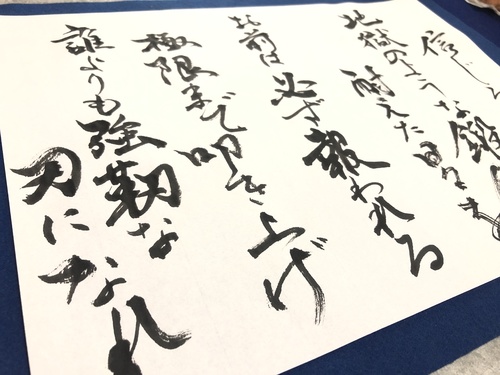 信じろ
地獄のような鍛
耐えた日々
お前は必ず
報われる
極限まで
叩き上げ
誰よりも
強靭な
刃になれ